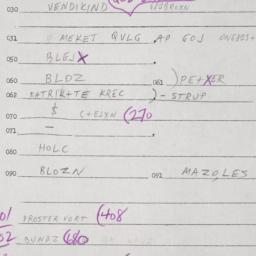 030 VENDIKIND
031 MEKET QVLG AP GOJ
050 BLEJX
060 BLDZ 061 ) PETXER
062 KATRIK+TE KREC ) - STRUP
070 $ C+EJXN (270
071 -
080 HOLC
090 BLOZN 091 MAZO,LES
01 PROSTER VORT (408
02 BUNDZ (680